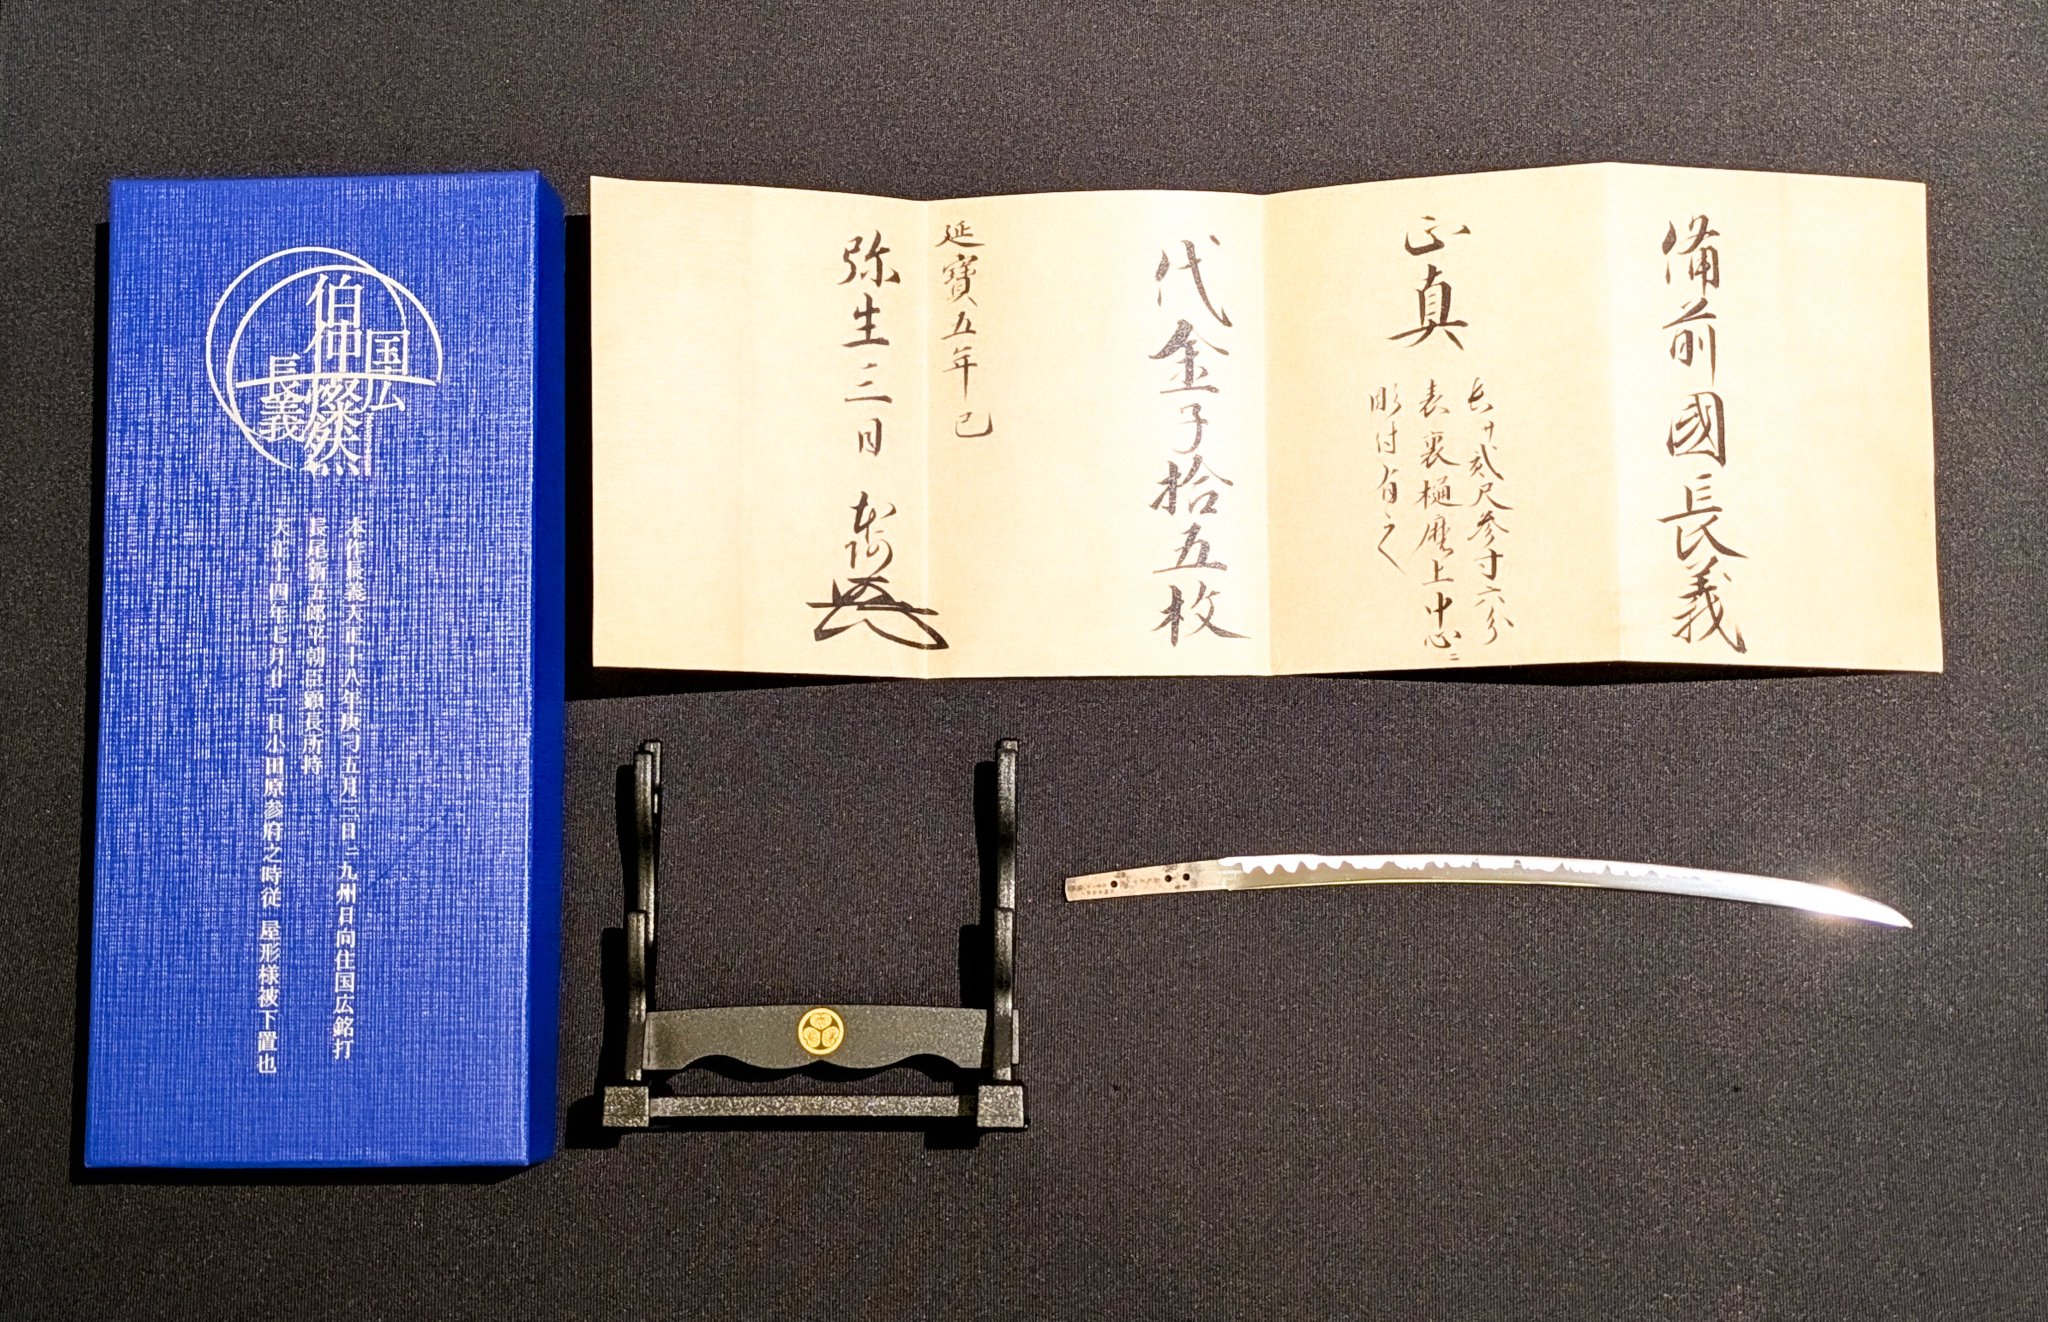 国広
伯仲燦然
長義
本作長義天正十八年庚寅五月三日ニ九州日向住国広銘打
長尾新五郎平朝臣顕長所持
天正十四年七月廿一日小田原参府之時従 屋形様被下置也
備前國長義
正真
長サ貳尺参寸六分
表裏樋磨上中心ニ
彫付有之
代金子拾五枚
延寳五年巳
弥生三日
本阿